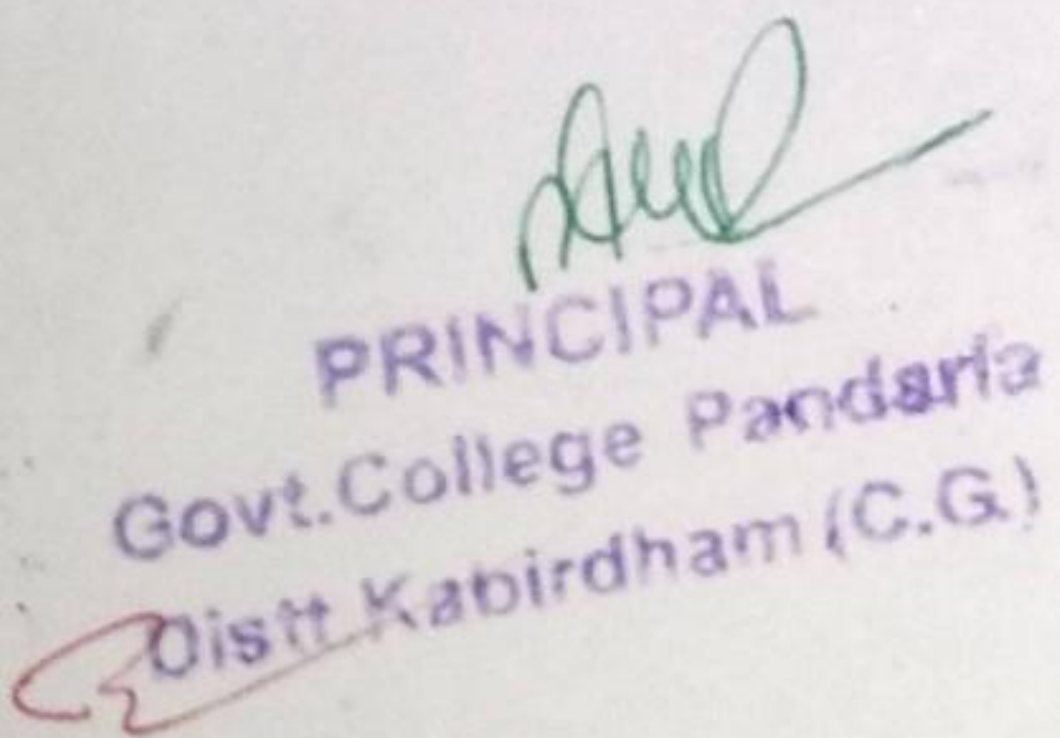 PRINCIPAL
Govt.College Pandaria
Distt Kabirdham (C.G.)